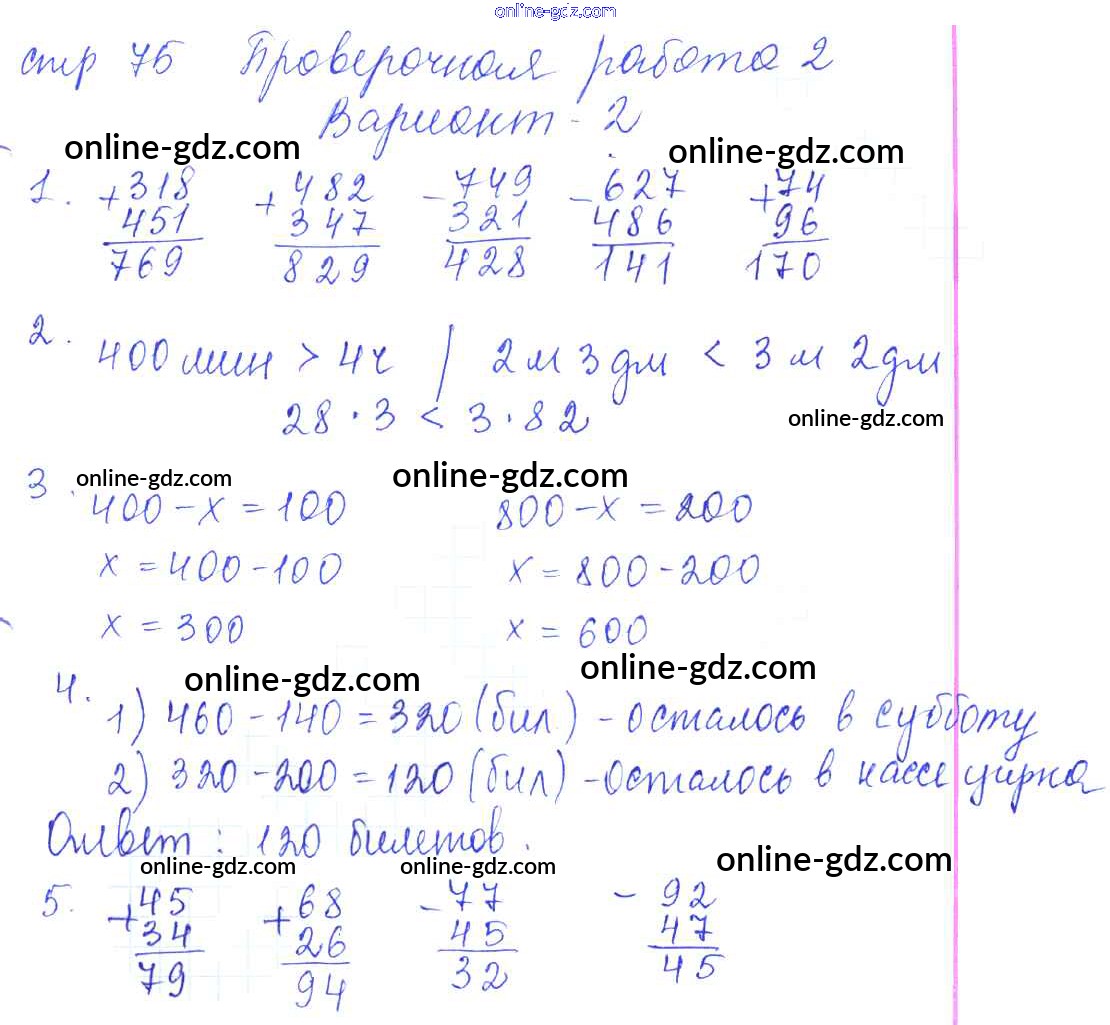 online-gdz.com
стр 75 Проверочная работа 2
Вариант - 2
online-gdz.com online-gdz.com
1. +318 +482 -749 -627 +74
451 347 321 486 96
769 829 428 141 170
2. 400 мин > 4 ч | 2 м 3 дм < 3 м 2 дм
28 · 3 < 3 · 82
online-gdz.com
online-gdz.com online-gdz.com
3. 400 - х = 100 800 - х = 200
х = 400 - 100 х = 800 - 200
х = 300 х = 600
online-gdz.com online-gdz.com
4. 1) 460 - 140 = 320 (бил.) - осталось в субботу
2) 320 - 200 = 120 (бил) - осталось в кассе цирка
Ответ: 120 билетов.
online-gdz.com online-gdz.com online-gdz.com
5. +45 +68 -77 -92
34 26 45 47
79 94 32 45